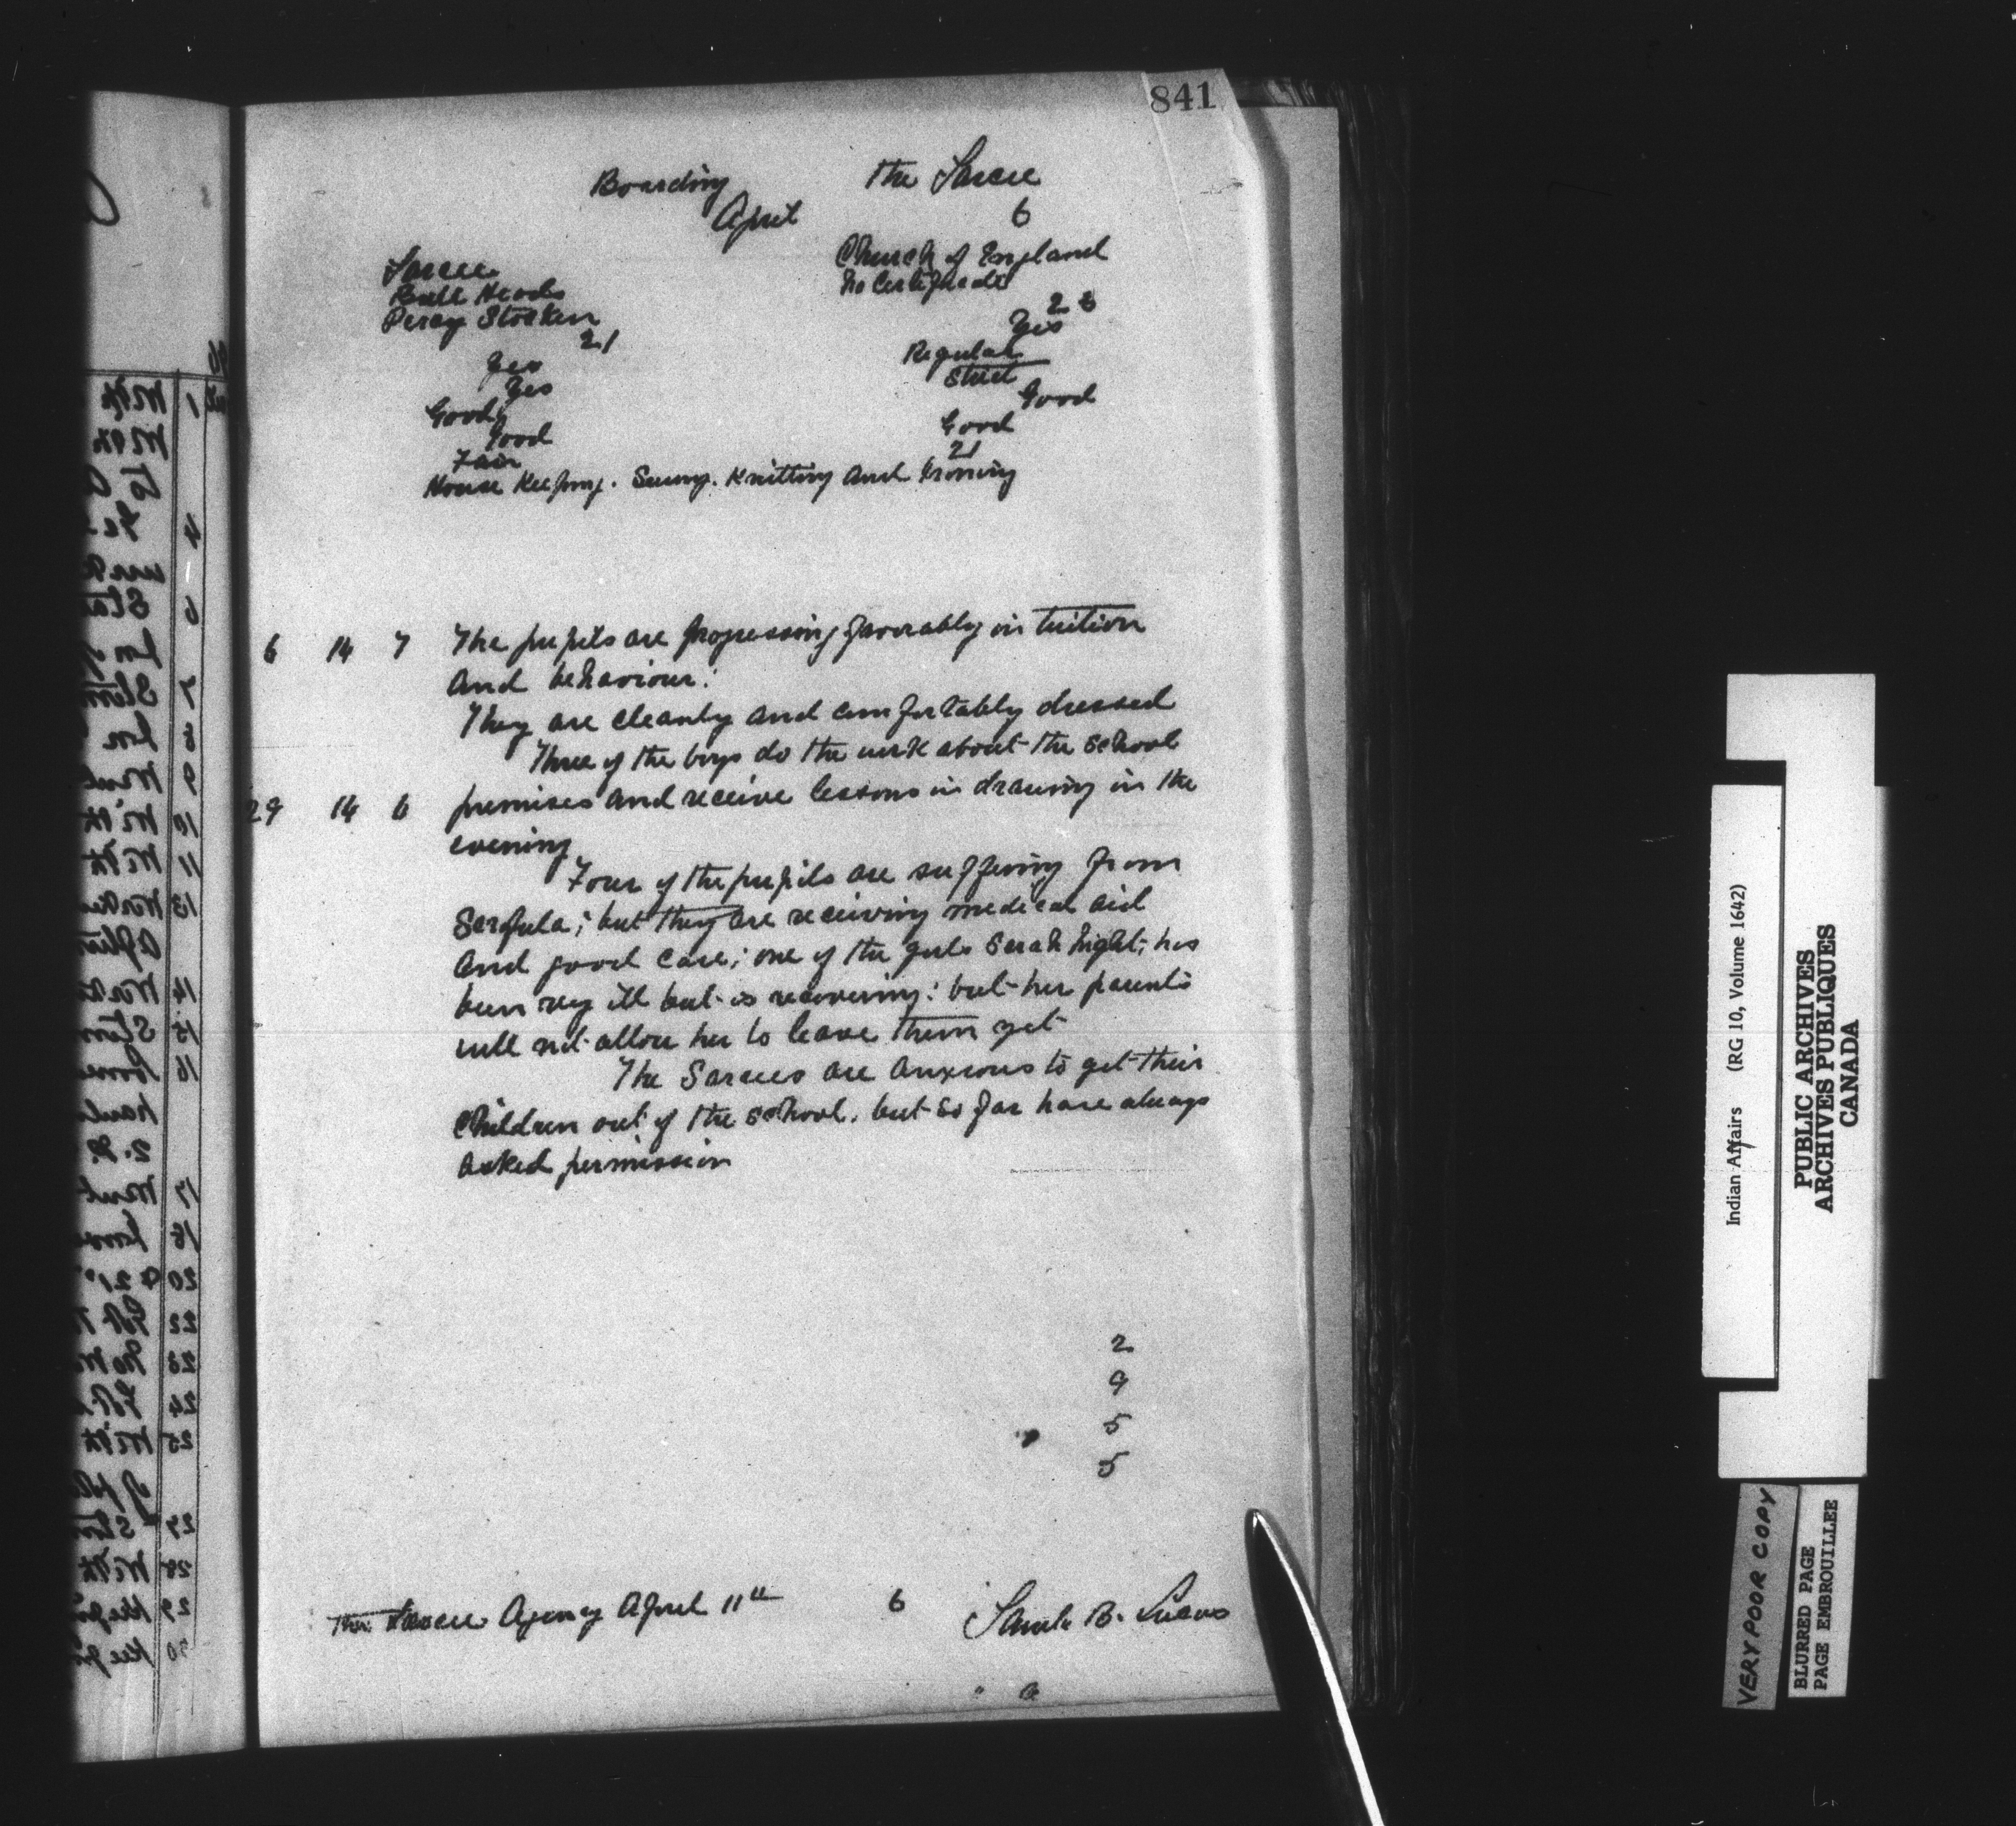 841
Boarding The Sarcee
April 6
Sarcee Church of England
Bull Heads No Certificate
Percy Stocken 23
21 Yes
Yes Regular
Yes Strict
Good Good
Good Good
Fair 21
House Keeping. Sewing. Knitting and Ironing
6 14 7 The pupils are progressing favorably in tuition
and behaviour.
They are cleanly and comfortably dressed
Three of the boys do the work about the school
29 14 6 premises and receive lessons in drawing in the
evening
Four of the pupils are suffering from
Scrofula; but they are receiving medical aid
and good care; one of the girls Sarah has
been very ill but is recovering: but her parents
will not allow her to leave them yet
The Sarcees are anxious to get their
children out of the school. but so far have always
asked permission
2
9
5
5
Sarcee Agency April 11th 6 Saml. B. Lucas
Indian Affairs (RG 10, Volume 1642)
PUBLIC ARCHIVES
ARCHIVES PUBLIQUES
CANADA
VERY POOR COPY
BLURRED PAGE
PAGE EMBROUILLEE